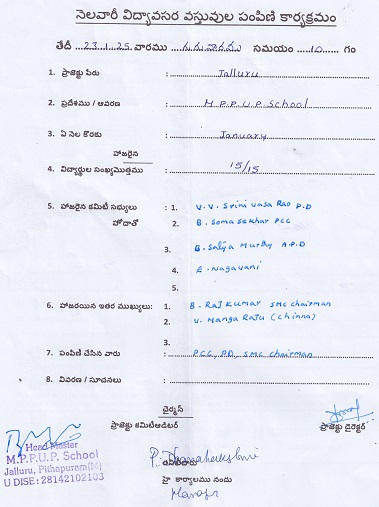 నెలవారీ విద్యావసర వస్తువుల పంపిణి కార్యక్రమం
తేదీ 23.1.25 వారము గురువారము సమయం 10 గం
1. ప్రాజెక్టు పేరు : Jalluru
2. ప్రదేశము / ఆవరణ : M.P.P.U.P.School
3. ఏ నెల కొరకు : January
హాజరైన
4. విద్యార్థుల సంఖ్య/మొత్తము : 15/15
5. హాజరైన కమిటీ సభ్యులు : 1. V.V. Srinivasa Rao P.D
హోదాతో 2. B. Somasekhar PCC
3. G. Satya Murthy A.P.D
4. E. Nagavani
5.
6. హాజరయిన ఇతర ముఖ్యులు: 1. B. Raj Kumar SMC chairman
2. V. Manga Raju (chinna)
7. పంపిణి చేసిన వారు : PCC, PD, SMC chairman
8. వివరణ / సూచనలు :
చైర్మన్
ప్రాజెక్టు కమిటీఆడిటర్ ప్రాజెక్టు డైరెక్టర్
Head Master
M.P.P.U.P. School
Jalluru, Pithapuram(M)
U DISE : 28142102103
హై కార్యాలయము నందు